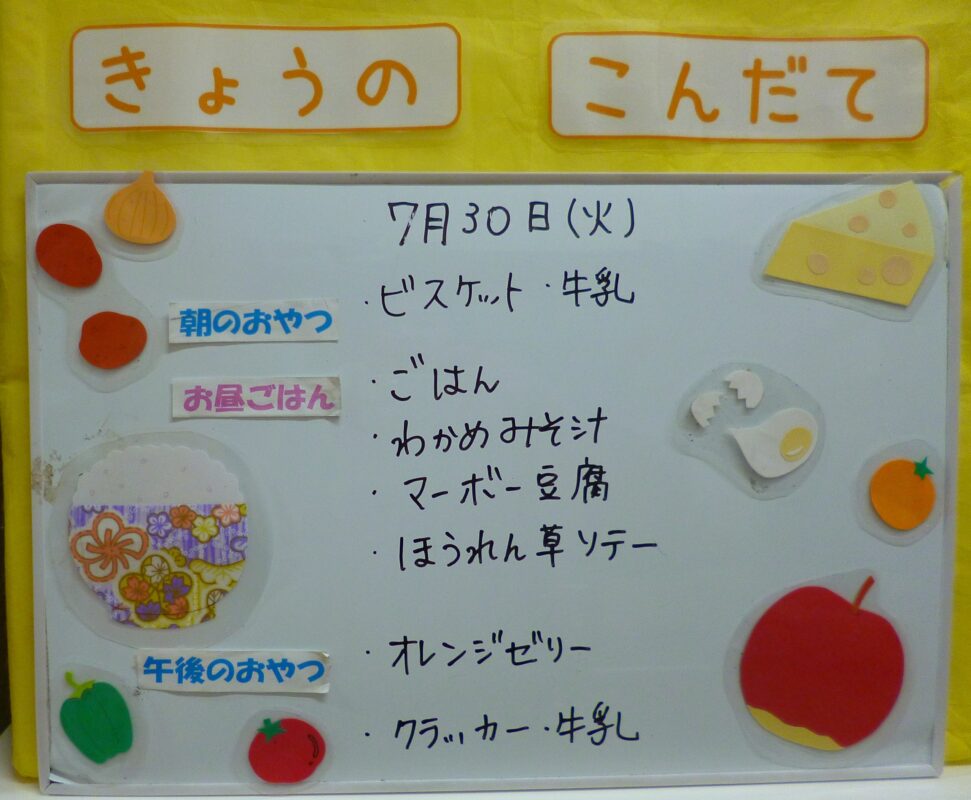 きょうの こんだて
7月30日(火)
朝のおやつ ・ビスケット・牛乳
お昼ごはん ・ごはん
・わかめみそ汁
・マーボー豆腐
・ほうれん草ソテー
午後のおやつ ・オレンジゼリー
・クラッカー・牛乳